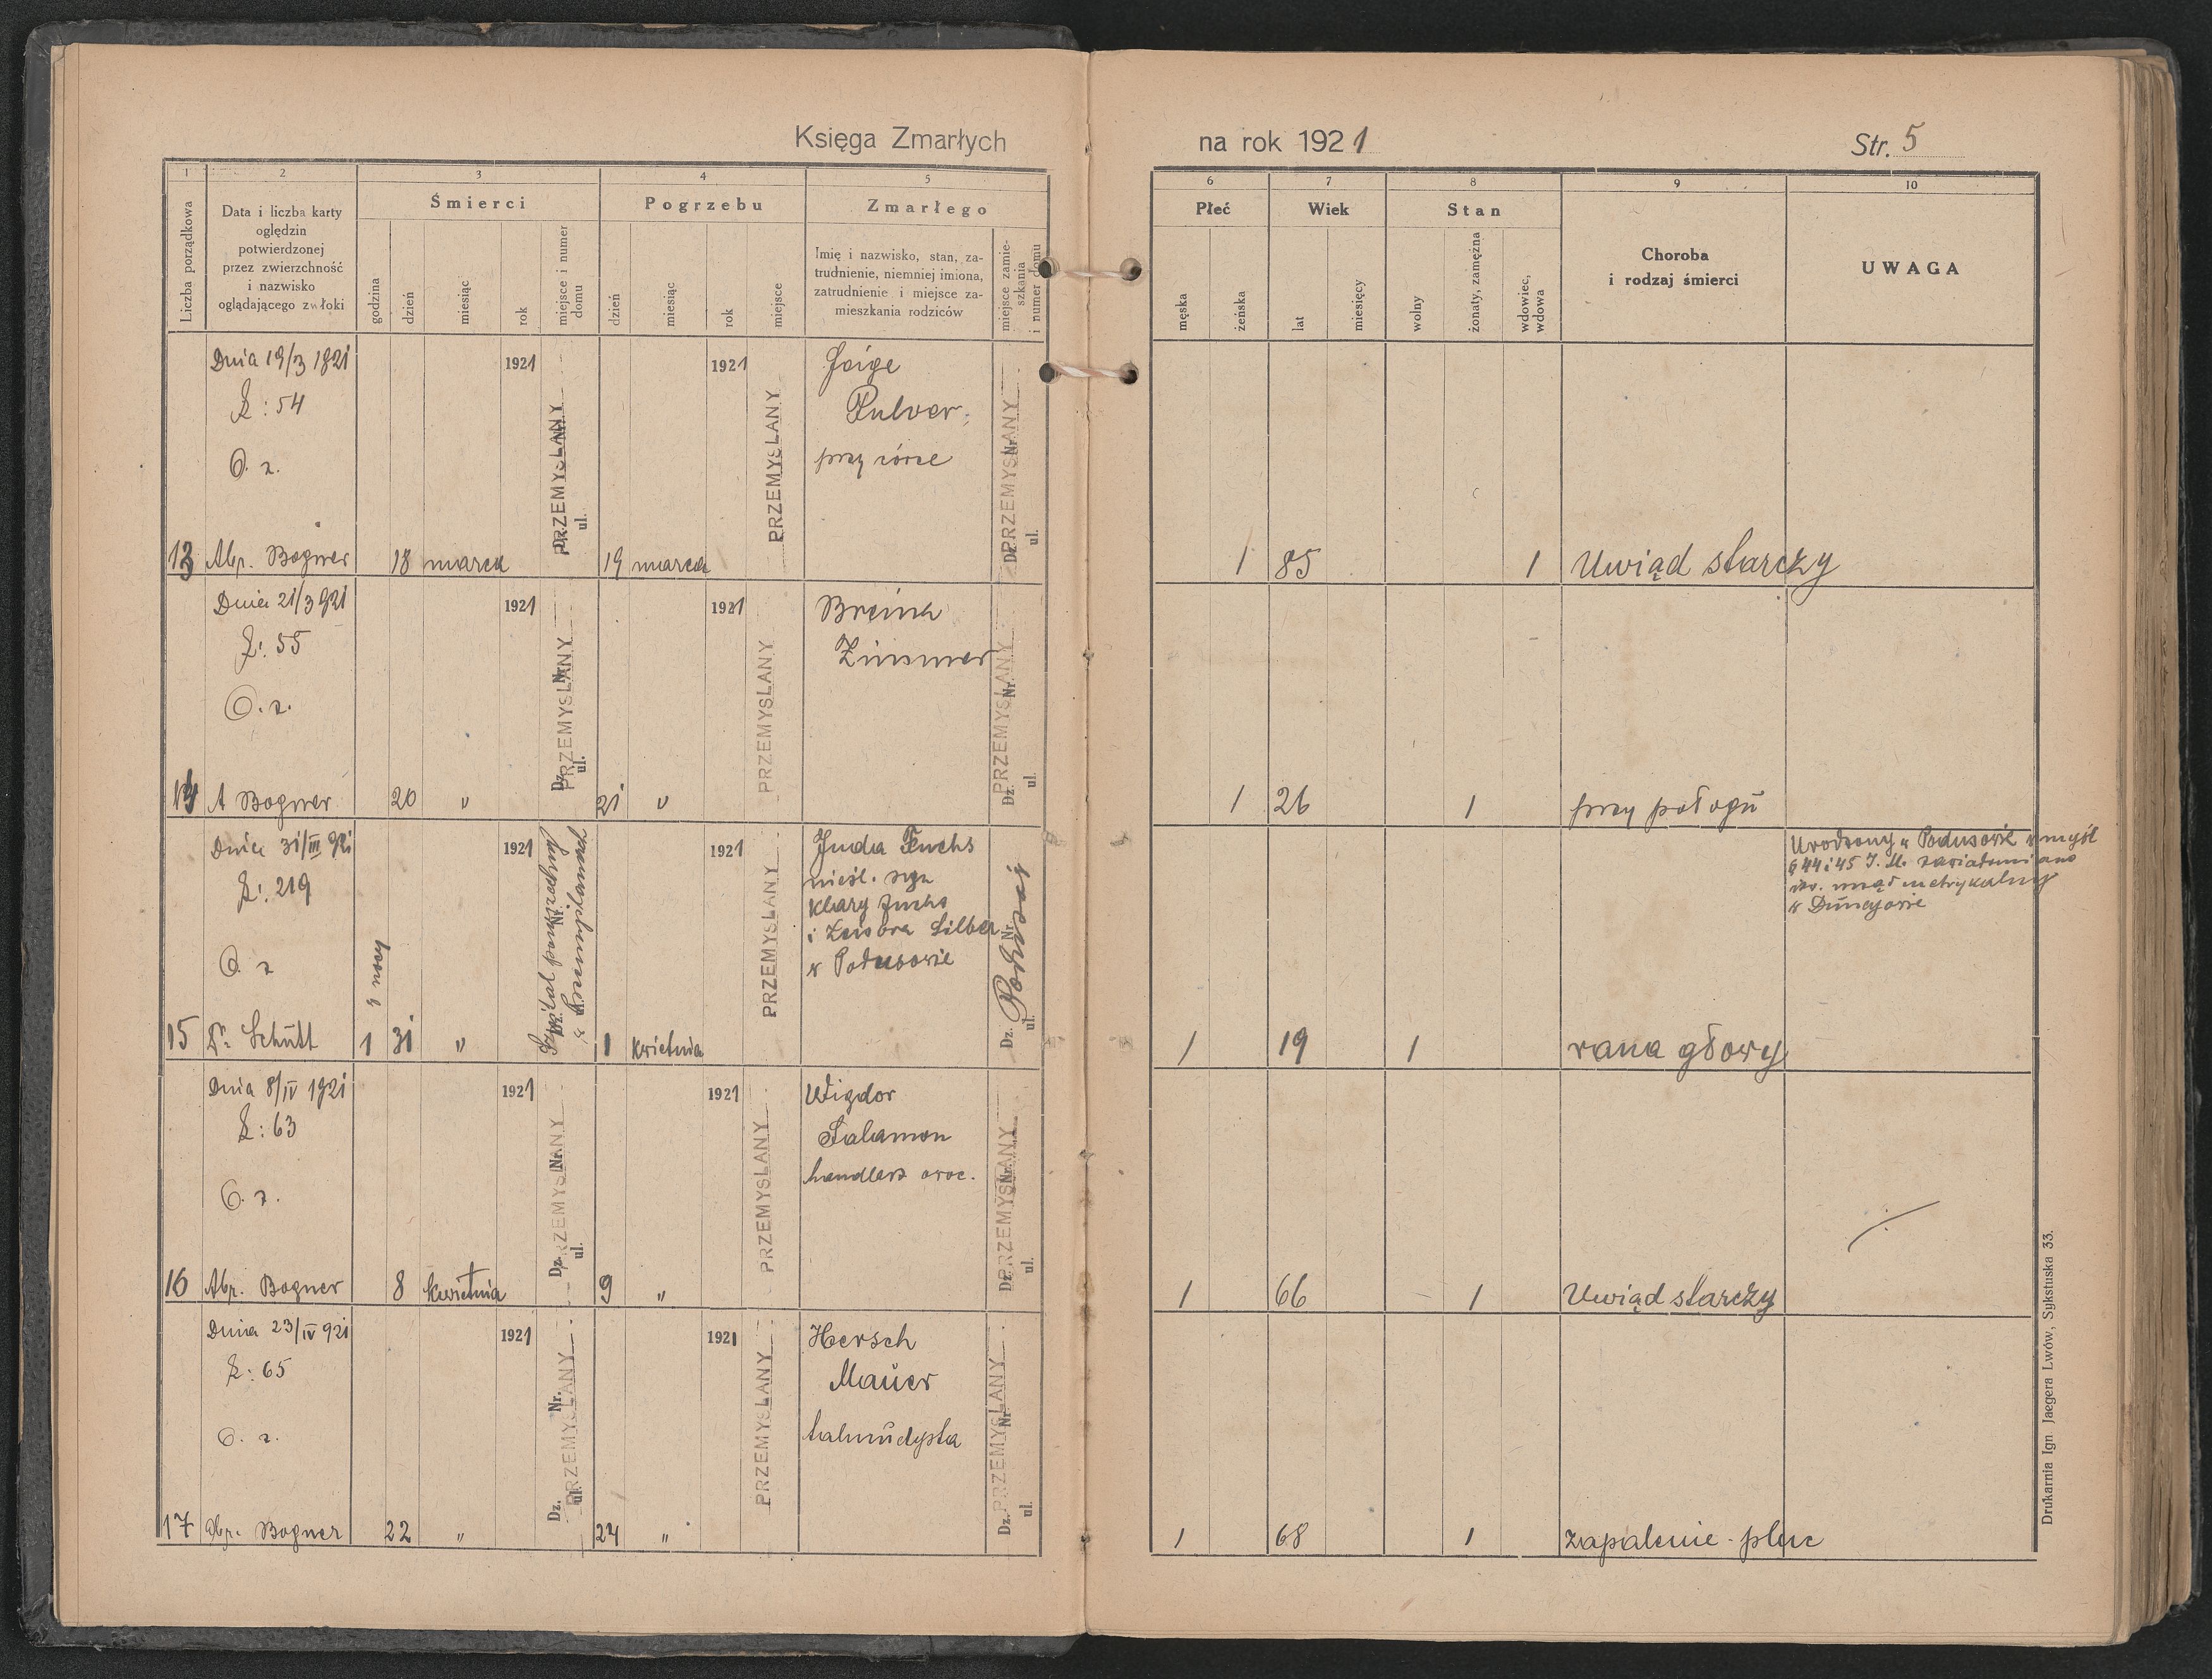 Księga Zmarłych na rok 1921 Str. 5
1 2 3 4 5 6 7 8 9 10
Liczba porządkowa
Data i liczba karty
oględzin
potwierdzonej
przez zwierzchność
i nazwisko
oglądającego zwłoki
Śmierci
godzina
dzień
miesiąc
rok
miejsce i numer
domu
Pogrzebu
dzień
miesiąc
rok
miejsce
Zmarłego
Imię i nazwisko, stan, za-
trudnienie, niemniej imiona,
zatrudnienie i miejsce za-
mieszkania rodziców
miejsce zamie-
szkania
i numer domu
Płeć
męska
żeńska
Wiek
lat
miesięcy
Stan
wolny
żonaty, zamężna
wdowiec,
wdowa
Choroba
i rodzaj śmierci
UWAGA
Dnia 19/3 1921
L: 54
O. z.
13 Abr. Bogner
18 marca 1921
PRZEMYSLANY
Dz. Nr. ul.
19 marca 1921
PRZEMYSLANY
Faige
Pulver
przy córce
PRZEMYSLANY
Dz. Nr. ul.
1 85 1 Uwiąd starczy
Dnia 21/3 921
L: 55
O. z.
14 A Bogner
20 " 1921
PRZEMYSLANY
Dz. Nr. ul.
21 " 1921
PRZEMYSLANY
Breina
Zinsmer
PRZEMYSLANY
Dz. Nr. ul.
1 26 1 przy połogu
Dnia 31/III 921
L: 219
O. z
15 Dr. Schütt
1 w nocy
31 " 1921
Szpital
Dz. Nr. ul.
1 kwietnia 1921
PRZEMYSLANY
Juda Fuchs
nieśl. syn
Klary Fuchs
i Silber
w Podusowie
Dz. Nr. ul.
1 19 1 rana głowy
Urodzony w Podusowie w myśl
§ 44 i 45 zawiadomiono
urząd metrykalny
w Dunajowie
Dnia 8/IV 1921
L: 63
O. z.
16 Abr. Bogner
8 kwietnia 1921
PRZEMYSLANY
Dz. Nr. ul.
9 " 1921
PRZEMYSLANY
Wigdor
Salamon
handlarz owoc.
PRZEMYSLANY
Dz. Nr. ul.
1 66 1 Uwiąd starczy
Dnia 23/IV 921
L: 65
O. z.
17 Abr. Bogner
22 " 1921
PRZEMYSLANY
Dz. Nr. ul.
24 " 1921
PRZEMYSLANY
Hersch
Mauer
talmudysta
PRZEMYSLANY
Dz. Nr. ul.
1 68 1 zapalenie płuc
Drukarnia Ign Jaegera Lwów, Sykstuska 33.